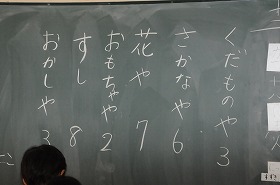 くだものや 3
さかなや 6
花や 7
おもちゃや 2
すし 8
おかしや 3